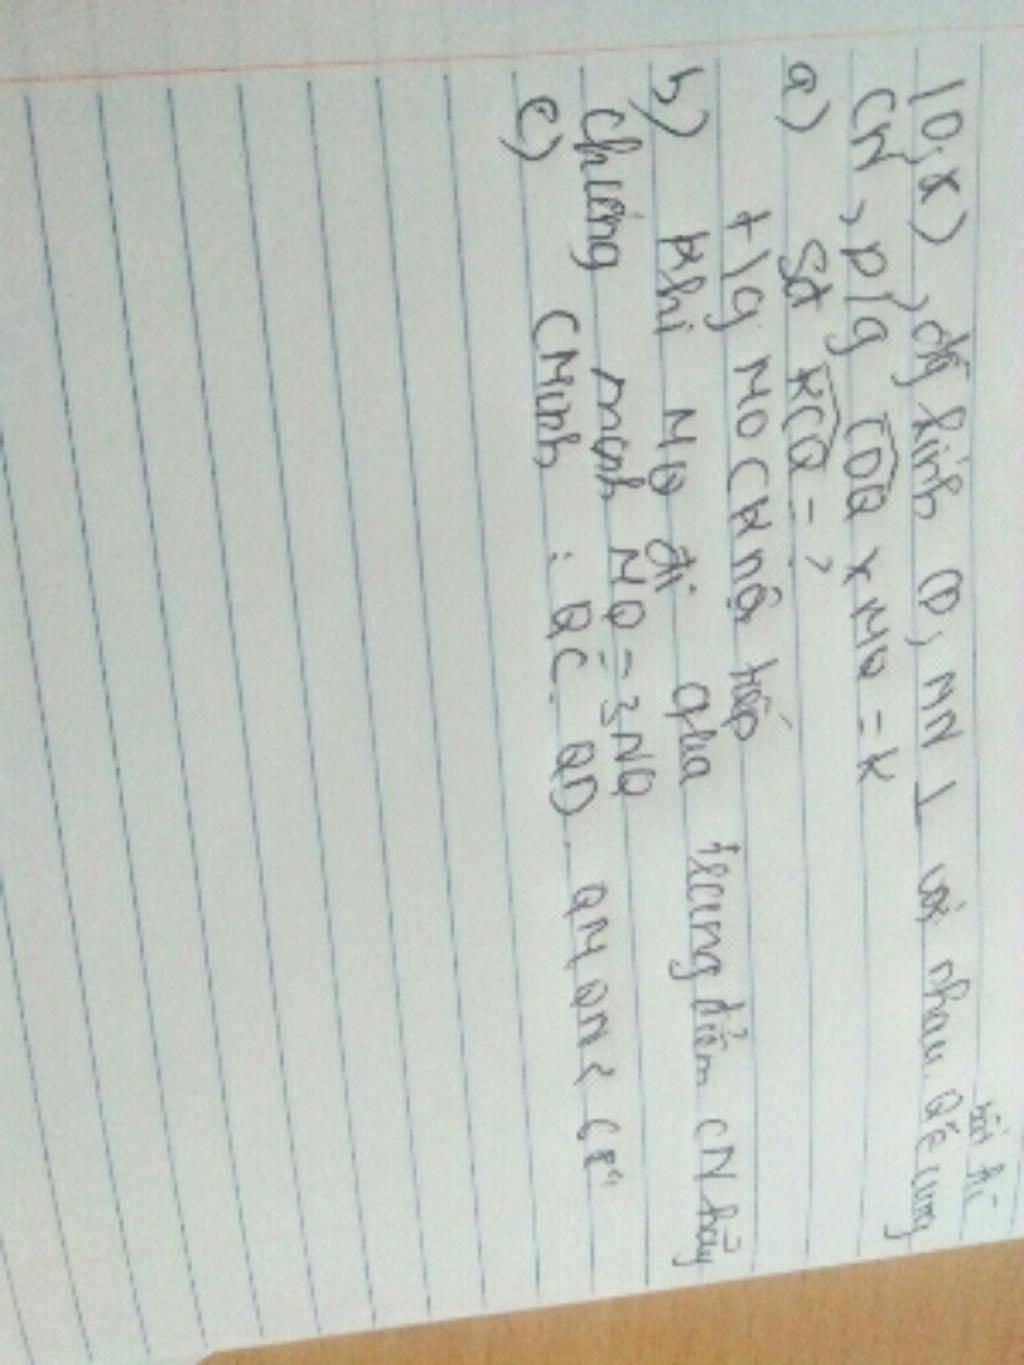 bất kì
(O,R), đg kính CD, MN ⊥ với nhau. Q ∈ cung
CN, p/g COQ x MQ = K
a) Sđ KCQ = ?
t/g MOCK nội tiếp
b) Khi MQ đi qua trung điểm CN hãy
chứng minh MQ = 3NQ
c) CMinh : QC. QD. QM QN <